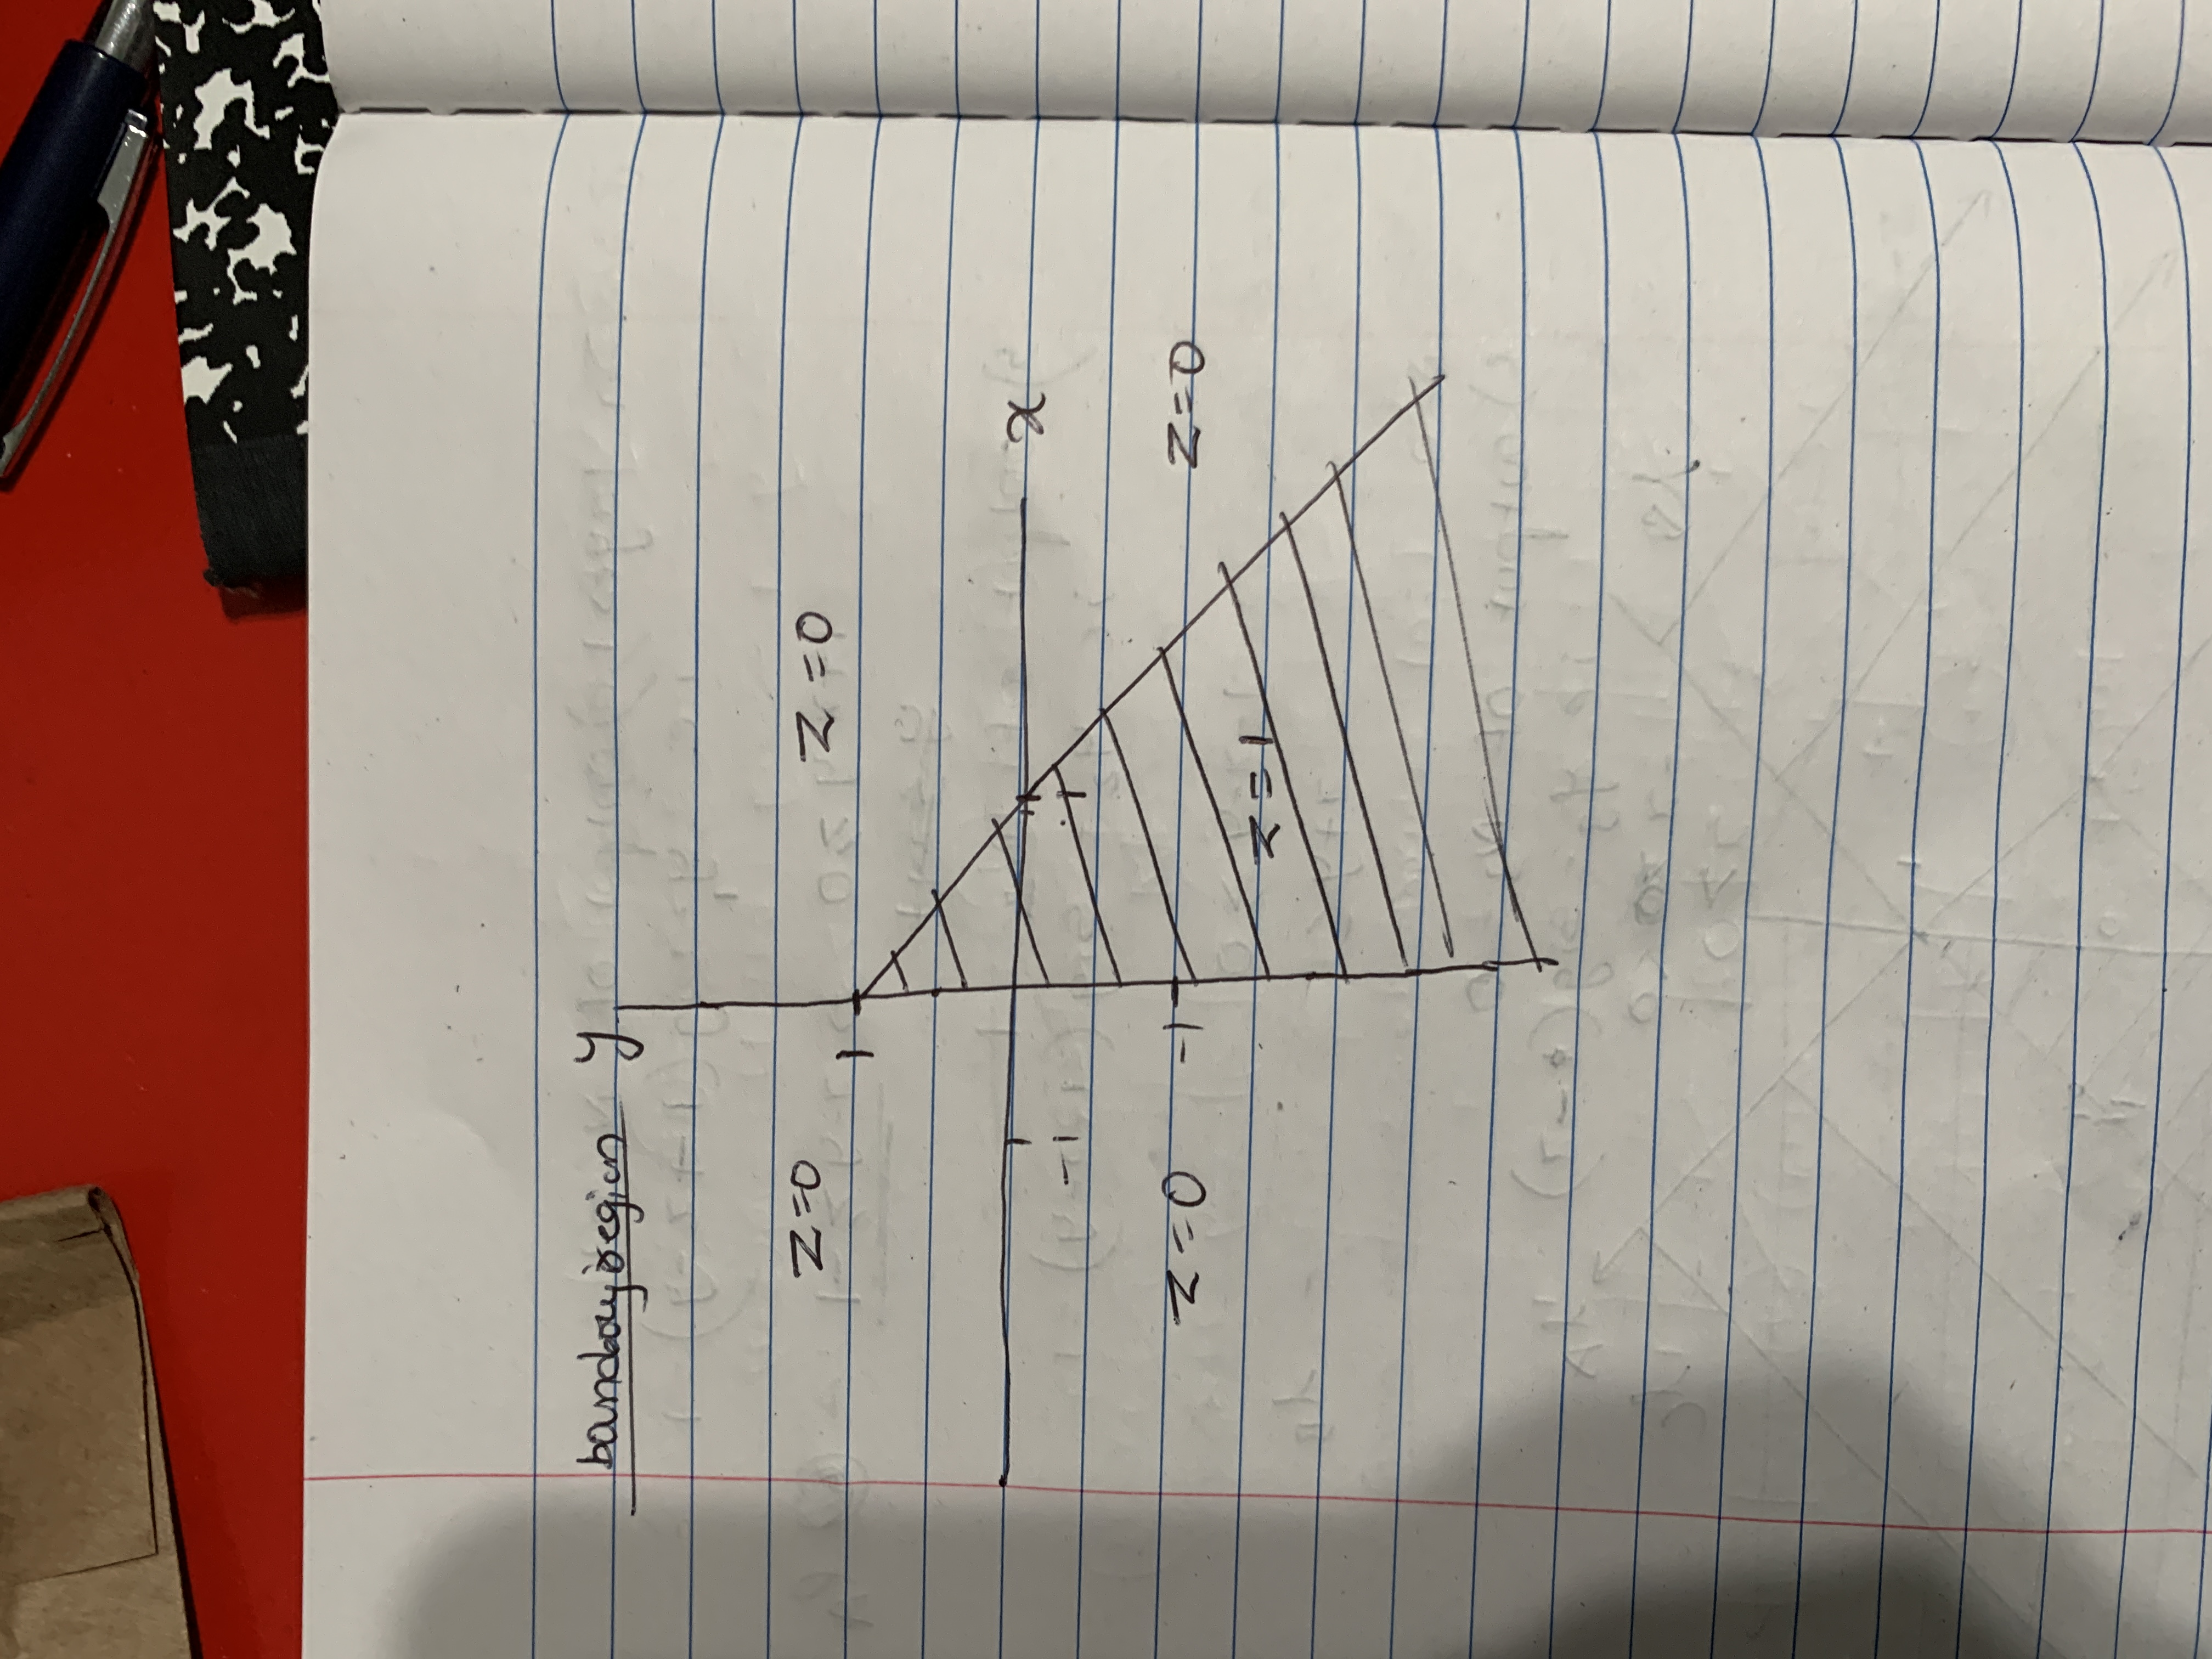 boundary region y
z=0 z=0
1
x
-1 1
z=0 -1 z=0
z=1